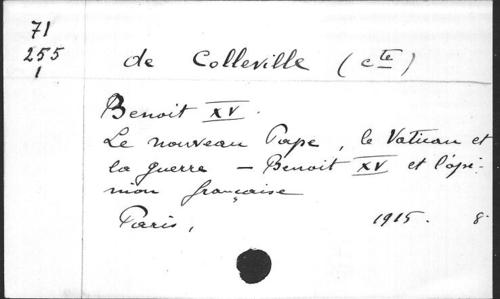 71
255
1
de Colleville (Cte)
Benoit XV.
Le nouveau Pape, le Vatican et
la guerre — Benoit XV et l'opi-
nion française
Paris, 1915. 8°